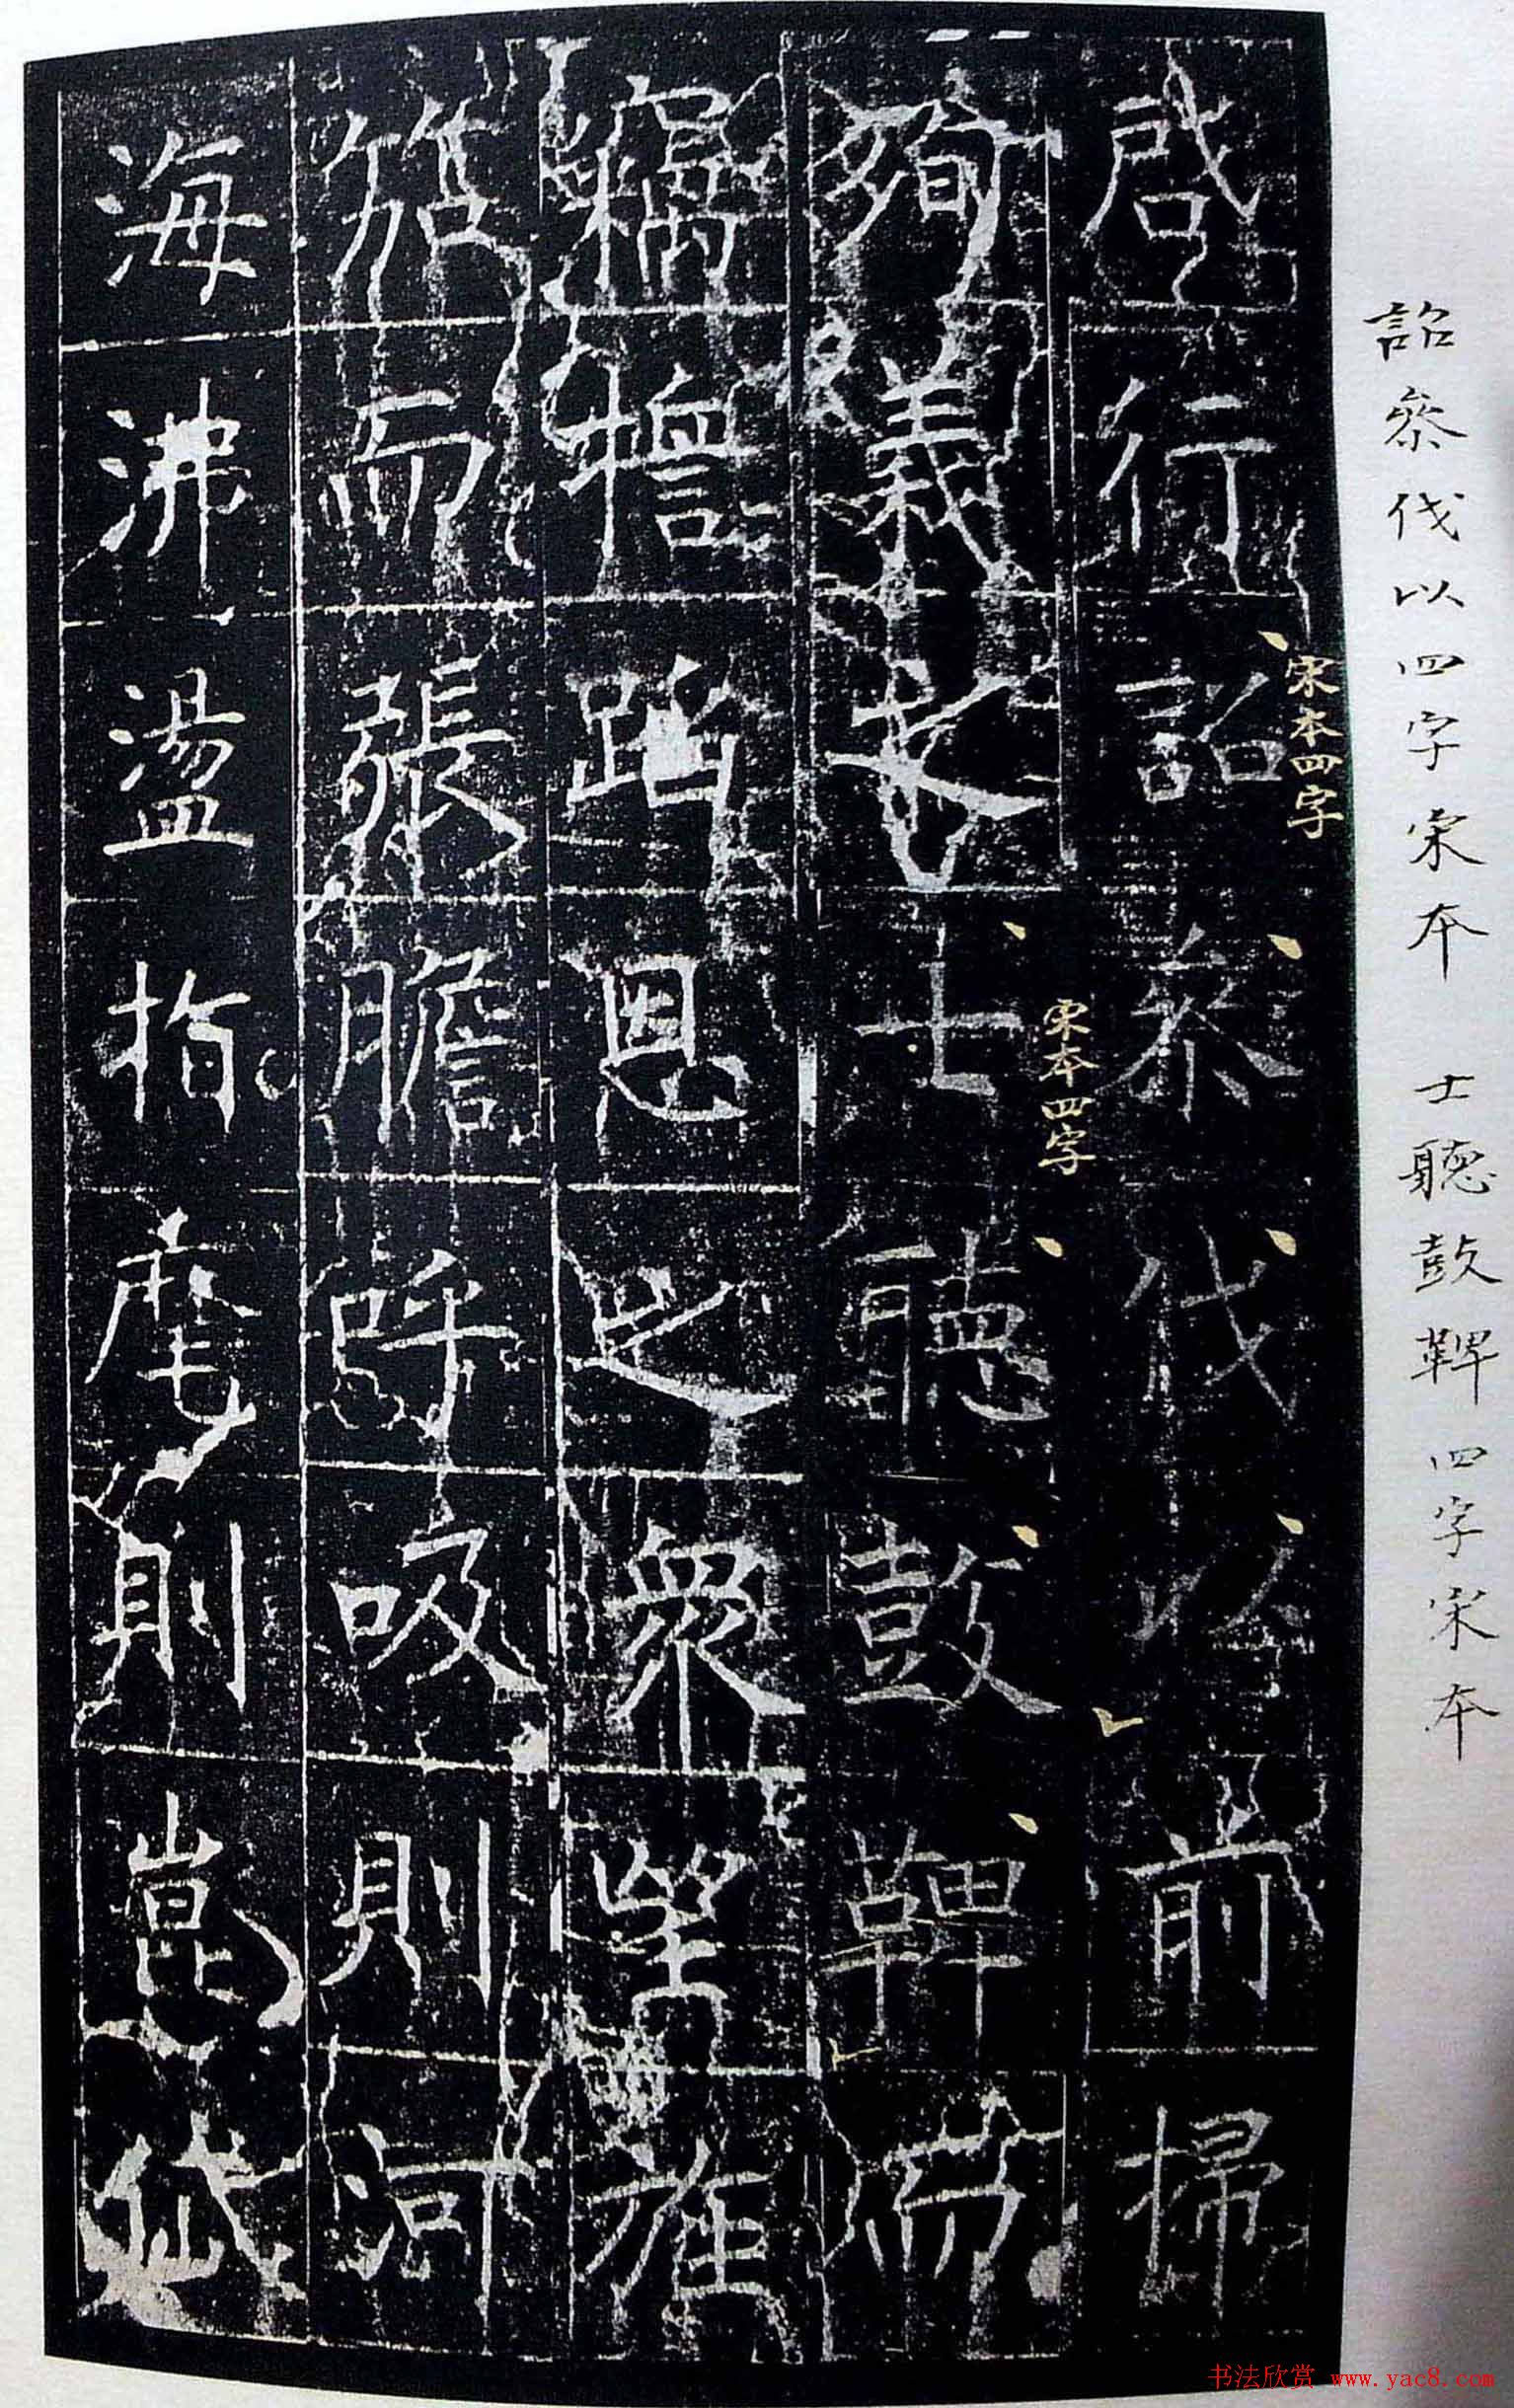 詔叅伐以四字宋本 士聽鼓鞞四字宋本
啓行詔叅伐以前掃
宋本四字
殉義士聽鼓鞞而
宋本四字
竊蹈恩之眾望旌
旆而張膽呼吸則河
海沸盪指麾則崑岱
书法欣赏 www.yac8.com